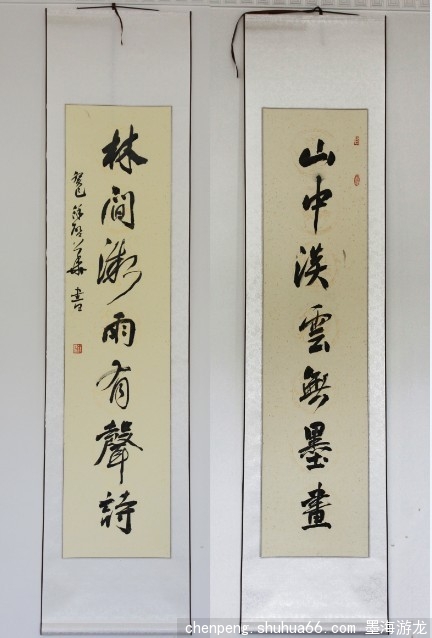 山中淡雲無墨畫
林間微雨有聲詩
癸巳 書
chenpeng.shuhua66.com 墨海游龙